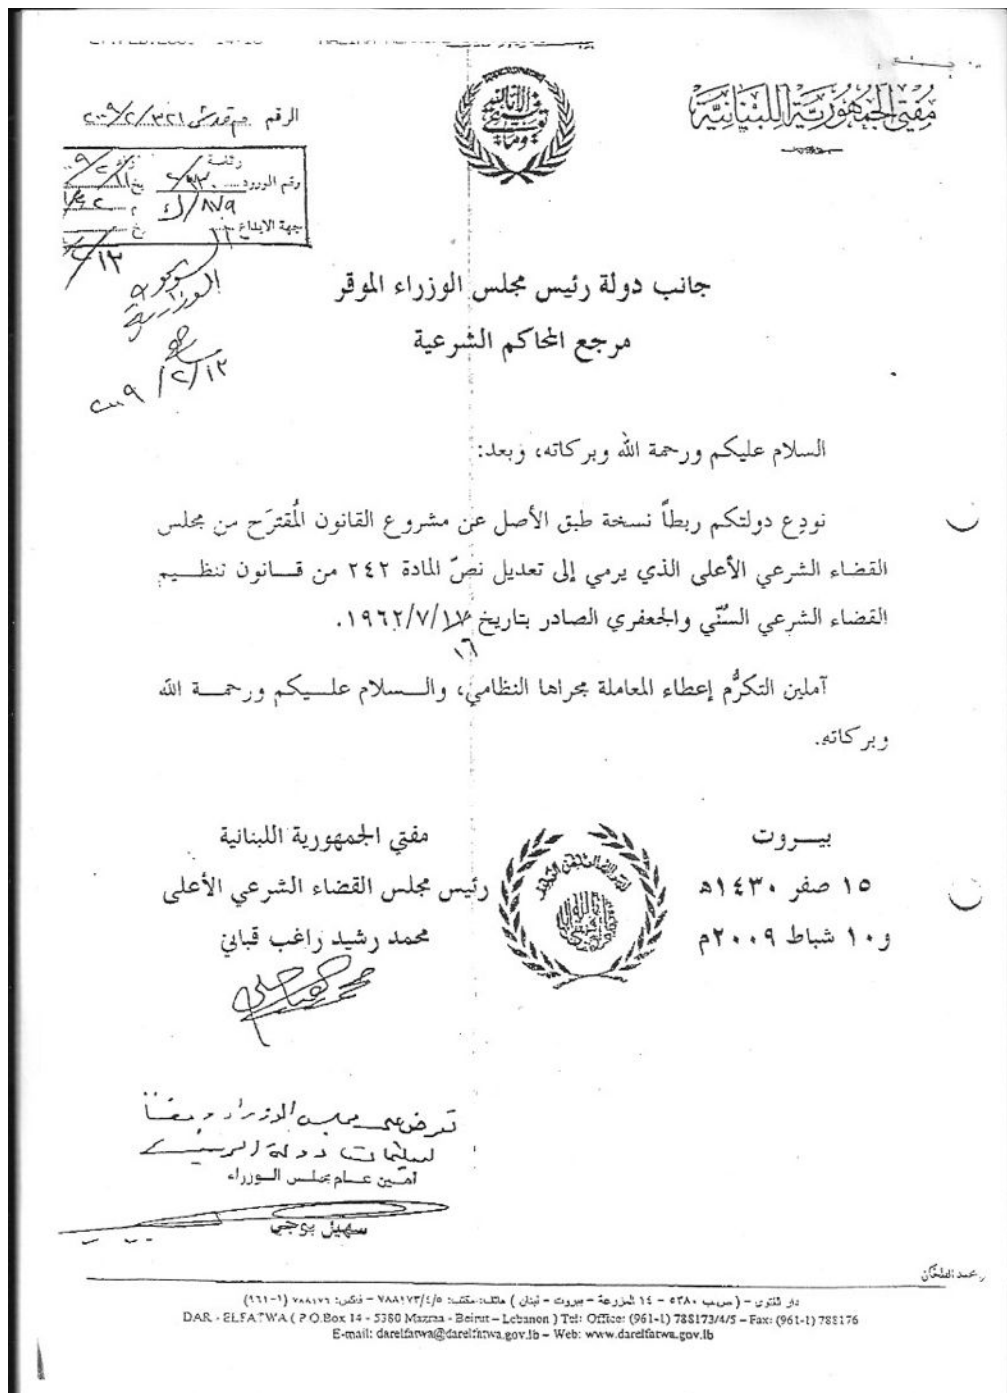 مفتي الجمهورية اللبنانية
الرقم ٣٢١/٢/٢٠٠٩
رقم الورود
٨٧٩/ك
جهة الايداع
١٢
٢٠٠٩/٢/١٢
جانب دولة رئيس مجلس الوزراء الموقر
مرجع المحاكم الشرعية
السلام عليكم ورحمة الله وبركاته، وبعد:
نودِع دولتكم ربطاً نسخة طبق الأصل عن مشروع القانون المُقترَح من مجلس
القضاء الشرعي الأعلى الذي يرمي إلى تعديل نصّ المادة ٢٤٢ من قـــانون تنظـــيم
القضاء الشرعي السُنّي والجعفري الصادر بتاريخ ١٩٦٢/٧/١٧.
١٦
آملين التكرُّم إعطاء المعاملة مجراها النظامي، والـــسلام علـــيكم ورحمـــة الله
وبركاته.
بيـــروت
١٥ صفر ١٤٣٠ه
و١٠ شباط ٢٠٠٩م
مفتي الجمهورية اللبنانية
رئيس مجلس القضاء الشرعي الأعلى
محمد رشيد راغب قباني
تعرض على مجلس الوزراء وفقاً
لتعليمات دولة الرئيس
أمـين عـــام مجلـس الـــوزراء
سهيل بوجي
دار الفتوى – ( ص.ب ٥٣٨٠ – ١٤ المزرعة – بيروت – لبنان ) هاتف: مكتب: ٧٨٨١٧٣/٤/٥ – فاكس: ٧٨٨١٧٦ (١-٩٦١)
DAR - ELFATWA ( P.O.Box 14 - 5380 Mazraa - Beirut – Lebanon ) Tel: Office: (961-1) 788173/4/5 – Fax: (961-1) 788176
E-mail: darelfatwa@darelfatwa.gov.lb – Web: www.darelfatwa.gov.lb